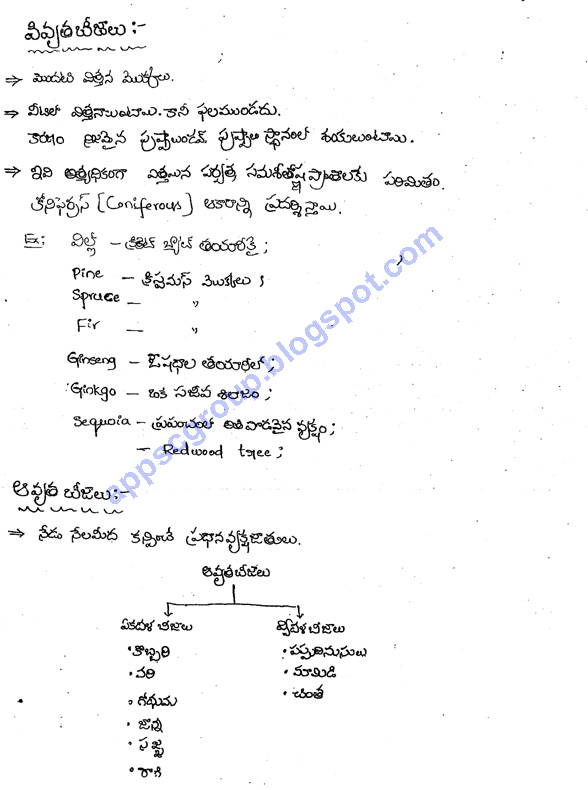 వివృతబీజాలు :-
⇒ మొదటి విత్తన మొక్కలు.
⇒ వీటిలో విత్తనాలుంటాయి. కానీ ఫలముండదు.
కారణం పుష్పాలుండవ్ పుష్పాల స్థానంలో శంకులుంటాయి.
⇒ ఇవి అత్యధికంగా ఎత్తయిన పర్వత, సమశీతోష్ణ ప్రాంతాలకు పరిమితం.
కోనిఫెర్రస్ (Coniferous) ఆకారాన్ని ప్రదర్శిస్తాయి.
Ex: విల్లో – క్రికెట్ బ్యాట్ తయారీకై ;
Pine – క్రిష్టమస్ మొక్కలు ;
Spruce – "
Fir – "
Ginseng – ఔషధాల తయారీలో ;
Ginkgo – ఒక సజీవ శిలాజం ;
Sequoia – ప్రపంచంలో అతి పొడవైన వృక్షం ;
– Redwood tree ;
ఆవృతబీజాలు :-
⇒ నేడు నేలమీద కన్పించే ప్రధాన వృక్షజాతులు.
ఆవృతబీజాలు
ఏకదళ బీజాలు ద్విదళ బీజాలు
• కొబ్బరి • పప్పుదినుసులు
• వరి • మామిడి
• గోధుమ • చింత
• జొన్న
• సజ్జ
• రాగి
appscgroup.blogspot.com